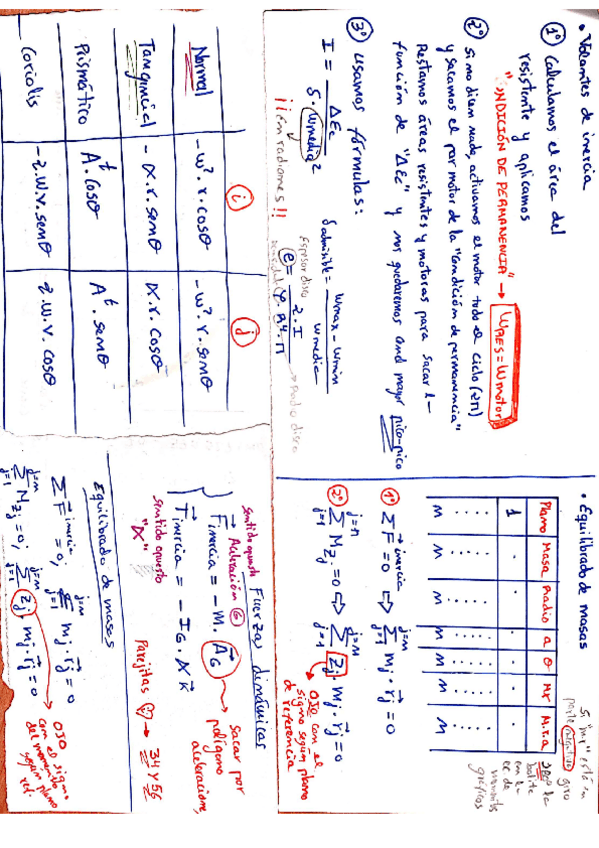 • Volantes de inercia
① Calculamos el área del
resistente y aplicamos
"CONDICIÓN DE PERMANENCIA" → WRES = Wmotor
② Si no dicen nada, activamos el motor todo el ciclo (2π)
y sacamos el par motor de la "condición de permanencia"
Restamos áreas resistentes y motoras para sacar
función de "ΔEc" y nos quedaremos con mayor pico-pico
③ Usamos fórmulas:
I = ΔEc / δ · ωmedia²
¡¡en radianes!!
δadmisible = ωmax - ωmin / ωmedia
Espesor disco
e = 2·I / φ·R⁴·π
→ Radio disco
i j
Normal -ω²·r·cosθ -ω²·r·senθ
Tangencial -α·r·senθ α·r·cosθ
Prismático Aᵗ·cosθ Aᵗ·senθ
Coriolis -2·ω·v·senθ 2·ω·v·cosθ
• Equilibrado de masas
Plano Masa Radio a θ Mr M.r.a
1 · · · · · ·
n n n n n n n
① ΣF inercia = 0 ⇒ Σ mj·rj = 0
② Σ Mzj = 0 ⇒ Σ zj·mj·rj = 0
OJO con el
signo según plano
de referencia
Fuerzas dinámicas
sentido opuesto
Aceleración G
F inercia = -M·AG → sacar por
polígono
aceleraciones
T inercia = -IG·α k
sentido opuesto
"α"
Parejitas → 34 y 56
Equilibrado de masas
ΣF inercia = 0; Σ mj·rj = 0
Σ Mzj = 0; Σ zj·mj·rj = 0
OJO
con el signo
del momento
según plano
ref.